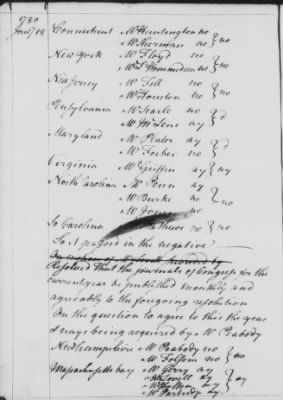 1780
Jany 18.
Connecticut Mr Huntington no } no
Mr Sherman no
New York Mr Floyd no } no
Mr L'Hommedieu no
New Jersey Mr Fell no } no
Mr Houston no
Pensylvania Mr Searle no } d
Mr McLene ay
Maryland Mr Plater ay } d
Mr Forbes no
Virginia Mr Griffin ay } ay
North Carolina Mr Penn ay
Mr Burke no } no
Mr Jones no
So Carolina Mr Mathews no } no
So it passed in the negative
On motion of seconded by
Resolved that the journals of Congress for the
current year be published monthly and
agreeably to the foregoing resolution
On the question to agree to this the yeas
& nays being required by Mr Peabody
New hampshire Mr Peabody no } no
Mr Folsom no
Massachusetts bay Mr Gerry ay
Mr Lovell ay } ay
Mr Holten ay
Mr Partridge ay